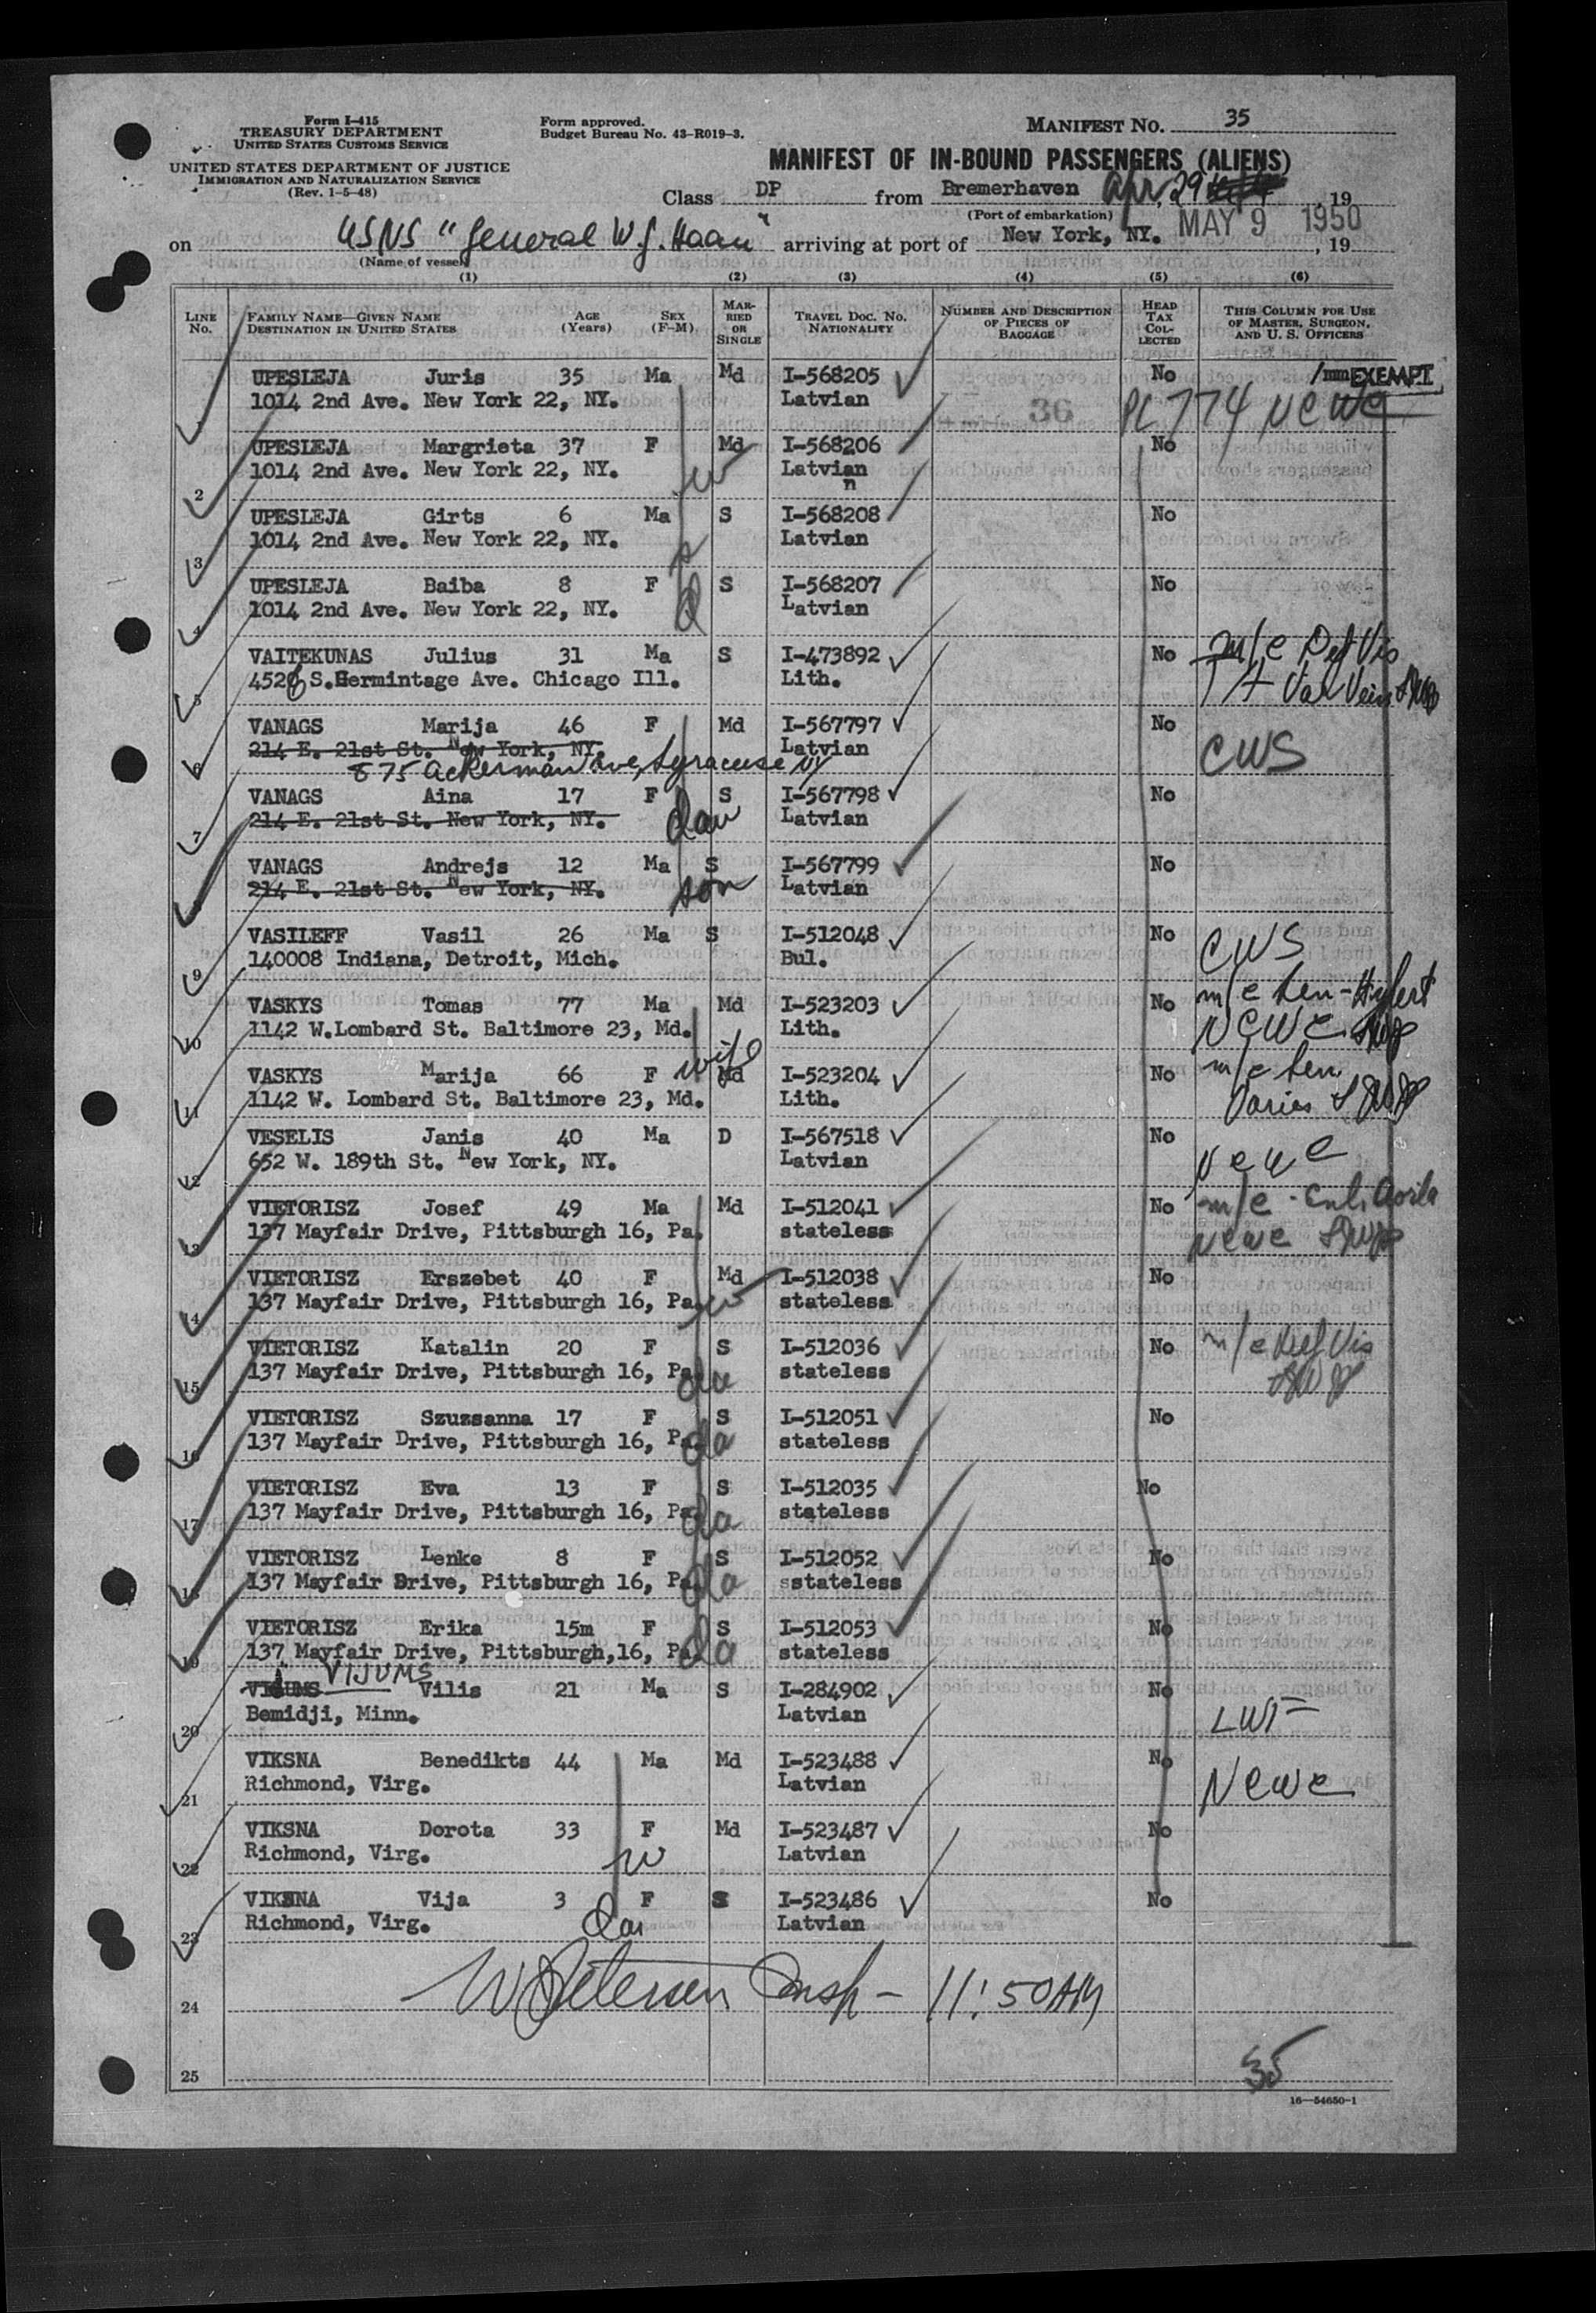 Form I-415
TREASURY DEPARTMENT
UNITED STATES CUSTOMS SERVICE
UNITED STATES DEPARTMENT OF JUSTICE
IMMIGRATION AND NATURALIZATION SERVICE
(Rev. 1-5-48)
Form approved.
Budget Bureau No. 43-R019-3.
MANIFEST NO. 35
MANIFEST OF IN-BOUND PASSENGERS (ALIENS)
Class DP from Bremerhaven Apr. 29, 19
(Port of embarkation)
on USNS "General W.G. Haan" arriving at port of New York, NY. MAY 9 1950, 19
(Name of vessel)
(1) (2) (3) (4) (5) (6)
LINE No. FAMILY NAME—GIVEN NAME DESTINATION IN UNITED STATES AGE (Years) SEX (F-M) MARRIED OR SINGLE TRAVEL DOC. NO. NATIONALITY NUMBER AND DESCRIPTION OF PIECES OF BAGGAGE HEAD TAX COLLECTED THIS COLUMN FOR USE OF MASTER, SURGEON, AND U. S. OFFICERS
UPESLEJA Juris 35 Ma Md I-568205 No EXEMPT
1 1014 2nd Ave. New York 22, NY. Latvian 36 PL 774 NCWC
UPESLEJA Margrieta 37 F Md I-568206 No
2 1014 2nd Ave. New York 22, NY. w Latvian
n
UPESLEJA Girts 6 Ma S I-568208 No
3 1014 2nd Ave. New York 22, NY. s Latvian
UPESLEJA Baiba 8 F S I-568207 No
4 1014 2nd Ave. New York 22, NY. d Latvian
VAITEKUNAS Julius 31 Ma S I-473892 No m/c Def Vis
5 4526 S.Hermintage Ave. Chicago Ill. Lith. Vein
VANAGS Marija 46 F Md I-567797 No
6 214 E. 21st St. New York, NY. Latvian CWS
875 Ackerman Ave, Syracuse NY
VANAGS Aina 17 F S I-567798 No
7 214 E. 21st St. New York, NY. dau Latvian
VANAGS Andrejs 12 Ma S I-567799 No
214 E. 21st St. New York, NY. son Latvian
VASILEFF Vasil 26 Ma S I-512048 No CWS
9 140008 Indiana, Detroit, Mich. Bul.
VASKYS Tomas 77 Ma Md I-523203 No m/c Sen-
10 1142 W.Lombard St. Baltimore 23, Md. Lith. NCWC
VASKYS Marija 66 F wife Md I-523204 No m/c Sen
11 1142 W. Lombard St. Baltimore 23, Md. Lith.
VESELIS Janis 40 Ma D I-567518 No
12 652 W. 189th St. New York, NY. Latvian NCWC
VIETORISZ Josef 49 Ma Md I-512041 No m/c
13 137 Mayfair Drive, Pittsburgh 16, Pa. stateless NCWC
VIETORISZ Erszebet 40 F Md I-512038 No
14 137 Mayfair Drive, Pittsburgh 16, Pa. w stateless
VIETORISZ Katalin 20 F S I-512036 No m/c Def Vis
15 137 Mayfair Drive, Pittsburgh 16, Pa. da stateless
VIETORISZ Szuzsanna 17 F S I-512051 No
16 137 Mayfair Drive, Pittsburgh 16, Pa. da stateless
VIETORISZ Eva 13 F S I-512035 No
17 137 Mayfair Drive, Pittsburgh 16, Pa. da stateless
VIETORISZ Lenke 8 F S I-512052 No
18 137 Mayfair Drive, Pittsburgh 16, Pa. da sstateless
VIETORISZ Erika 15m F S I-512053 No
19 137 Mayfair Drive, Pittsburgh,16, Pa. da stateless
VIJUMS
VIGUMS Vilis 21 Ma S I-284902 No
20 Bemidji, Minn. Latvian LWF
VIKSNA Benedikts 44 Ma Md I-523488 No
21 Richmond, Virg. Latvian NCWC
VIKSNA Dorota 33 F Md I-523487 No
22 Richmond, Virg. w Latvian
VIKSNA Vija 3 F S I-523486 No
23 Richmond, Virg. dau Latvian
24 W Petersen Insp - 11:50 AM
25 35
16—54650-1